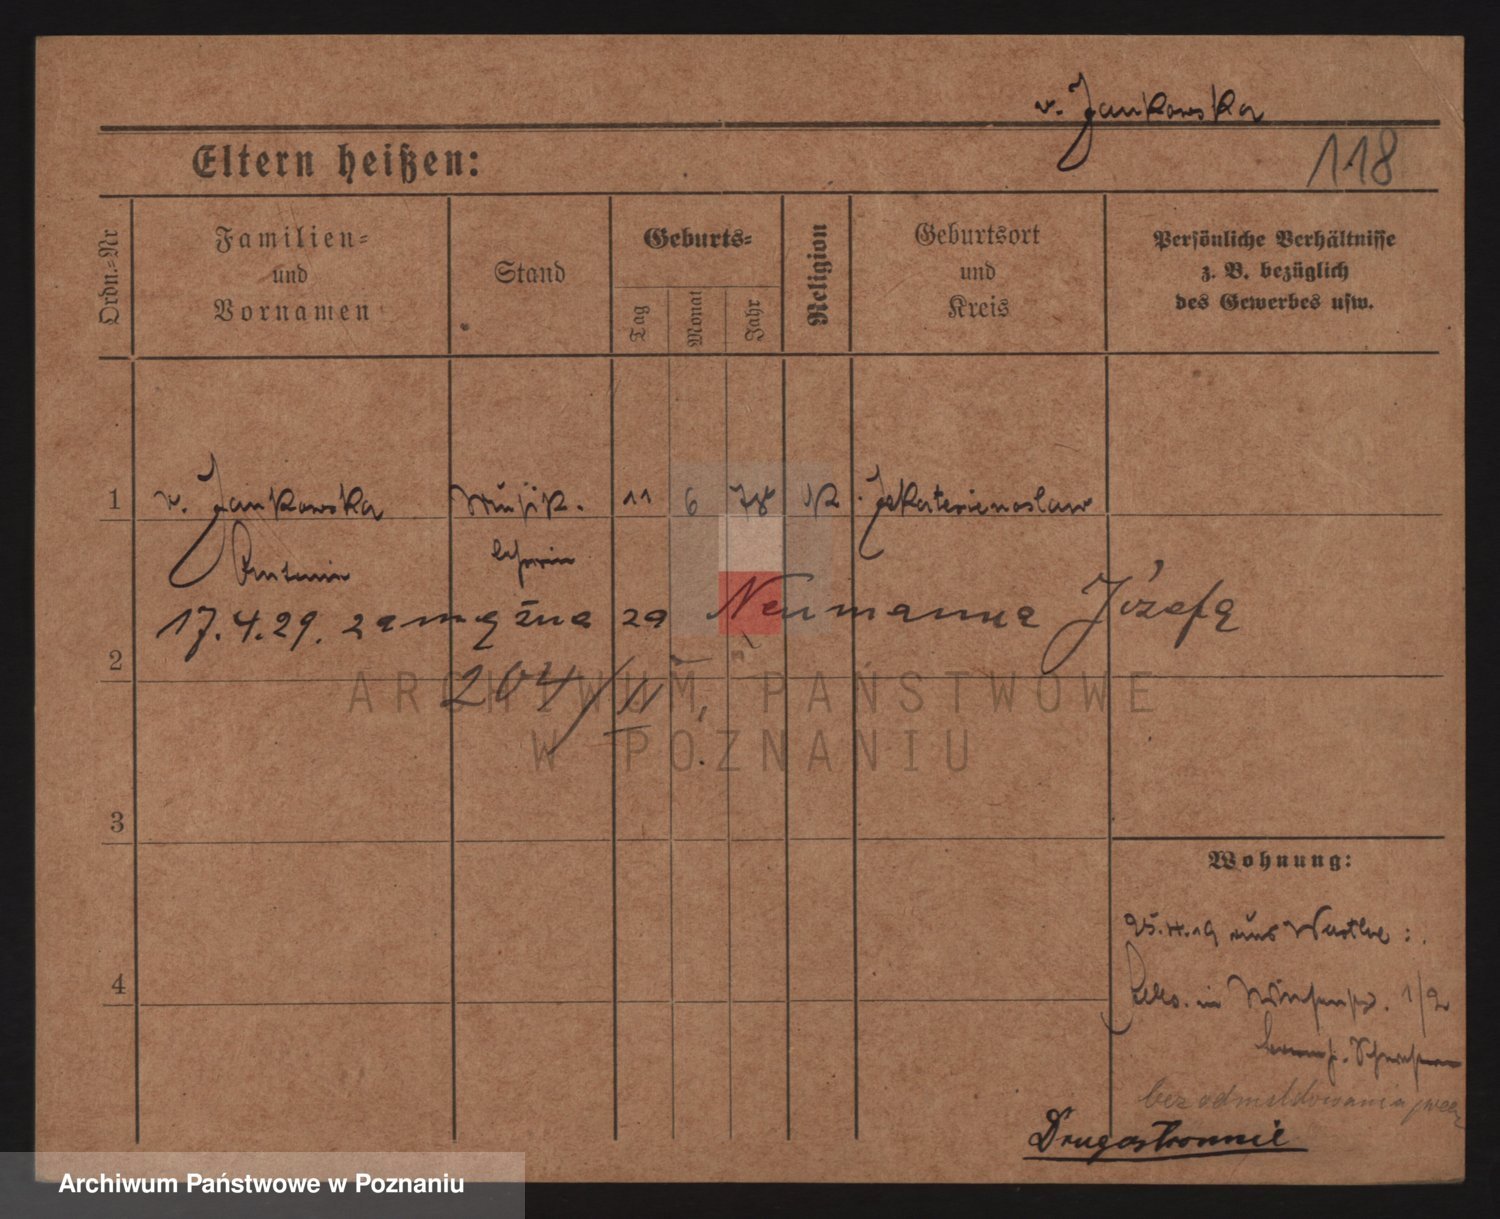 v. Jankowska
118
Eltern heißen:
Ordn.=Nr
Familien=
und
Vornamen
Stand
Geburts=
Tag
Monat
Jahr
Religion
Geburtsort
und
Kreis
Persönliche Verhältnisse
z. B. bezüglich
des Gewerbes usw.
1
v. Jankowska
Musik.
11 6 78 K
Jekaterienoslaw
lehrerin
17.4.29. zamężna za Neumanna Józefa
2
204/II
ARCHIWUM PAŃSTWOWE
W POZNANIU
3
Wohnung:
25.4.19 aus
4
in 1/2
bez odmeldowania
Drugostronnie
Archiwum Państwowe w Poznaniu